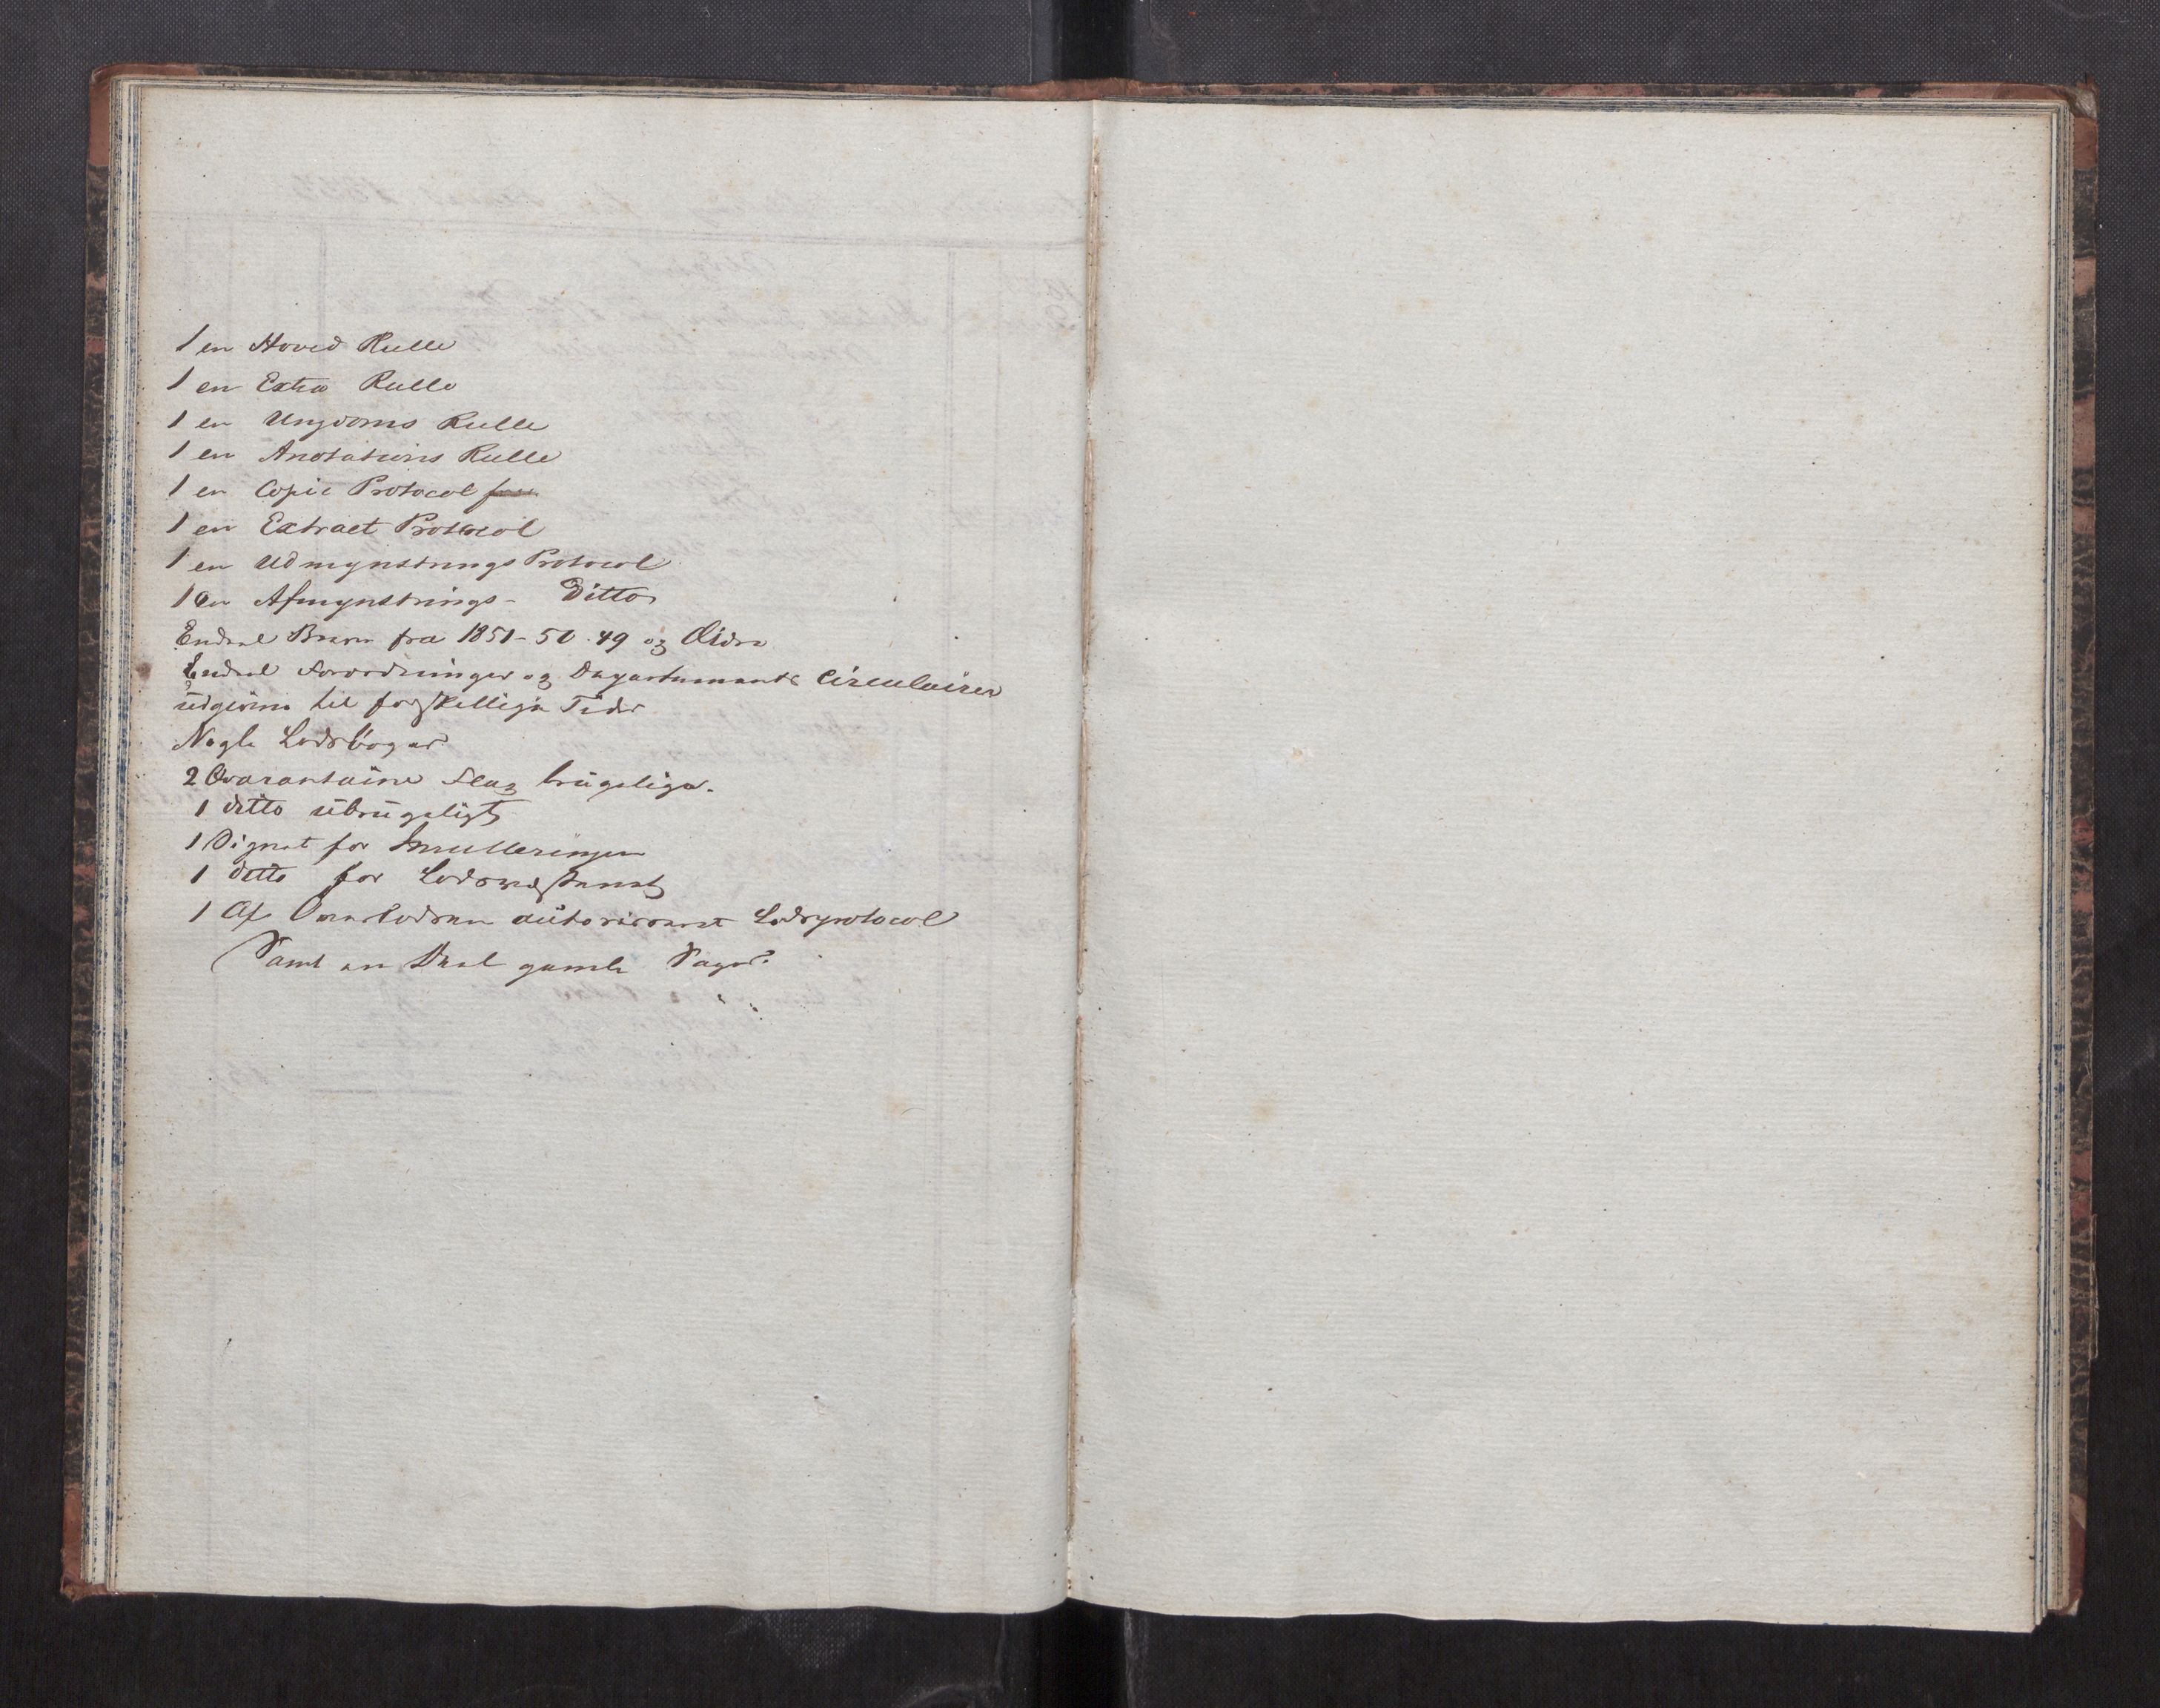 1 en Hoved Rulle
1 en Extra Rulle
1 en Ungdoms Rulle
1 en Anotations Rulle
1 en Copie Protocol
1 en Extract Protocol
1 en UdmynstringsProtocol
1 en Afmynstrings- Ditto
Endeel Breve fra 1851-50.49 og
Endeel Forordninger og Departements Circulairer
udgivne til forskellige Tider
Nogle Lodsbøger
2 Qvarantaine Flag brugelige.
1 ditto ubrugeligt
1 Signet for Innrulleringen
1 ditto for
1 Af Overlodsen autoriseret Lodsprotocol
Samt en Deel gamle Sager.